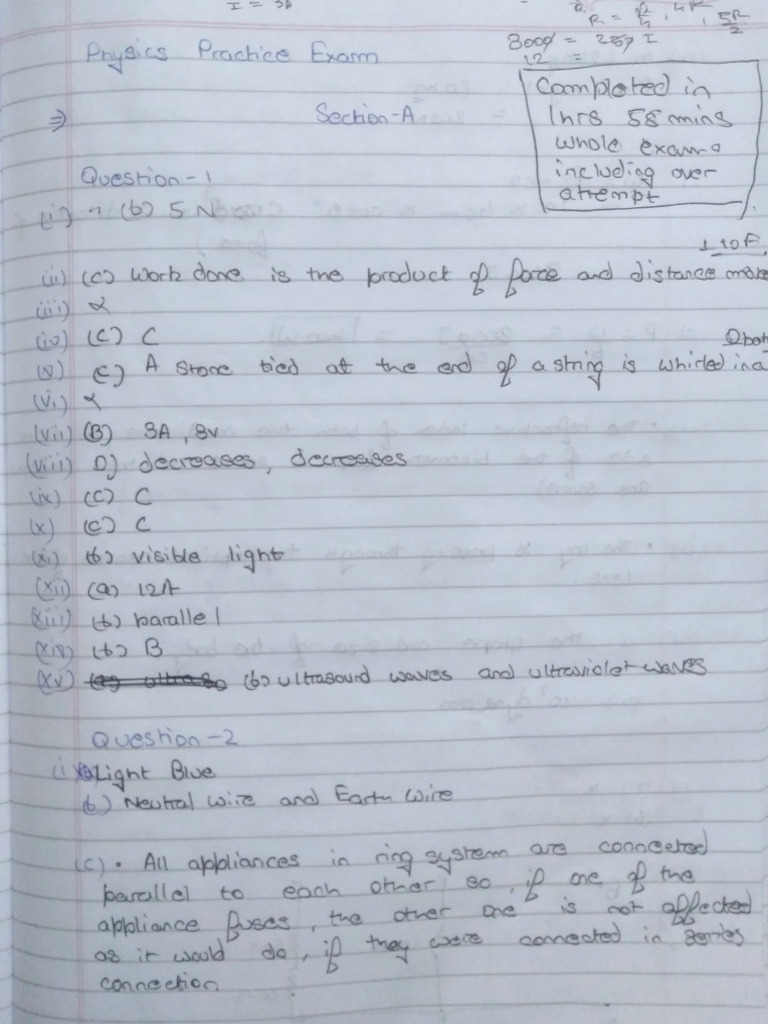 I = 3A
3000 = 250 I
12 =
Physics Practice Exam
Completed in
1hrs 58 mins
whole exam
including over
attempt
⇒ Section-A
Question-1
(i) (b) 5 N
(ii) (c) Work done is the product of force and distance
(iii) α
(iv) (c) C
(v) c) A stone tied at the end of a string is whirled in a
(vi) α
(vii) (B) 3A, 3V
(viii) D) decreases, decreases
(ix) (c) C
(x) (c) C
(xi) (b) visible light
(xii) (a) 12A
(xiii) (b) parallel
(xiv) (b) B
(xv) (b) ultrasound waves and ultraviolet waves
Question-2
(i) (a) Light Blue
(b) Neutral wire and Earth wire
(c) • All appliances in ring system are connected
parallel to each other so, if one of the
appliance fuses, the other one is not affected
as it would do, if they were connected in series
connection